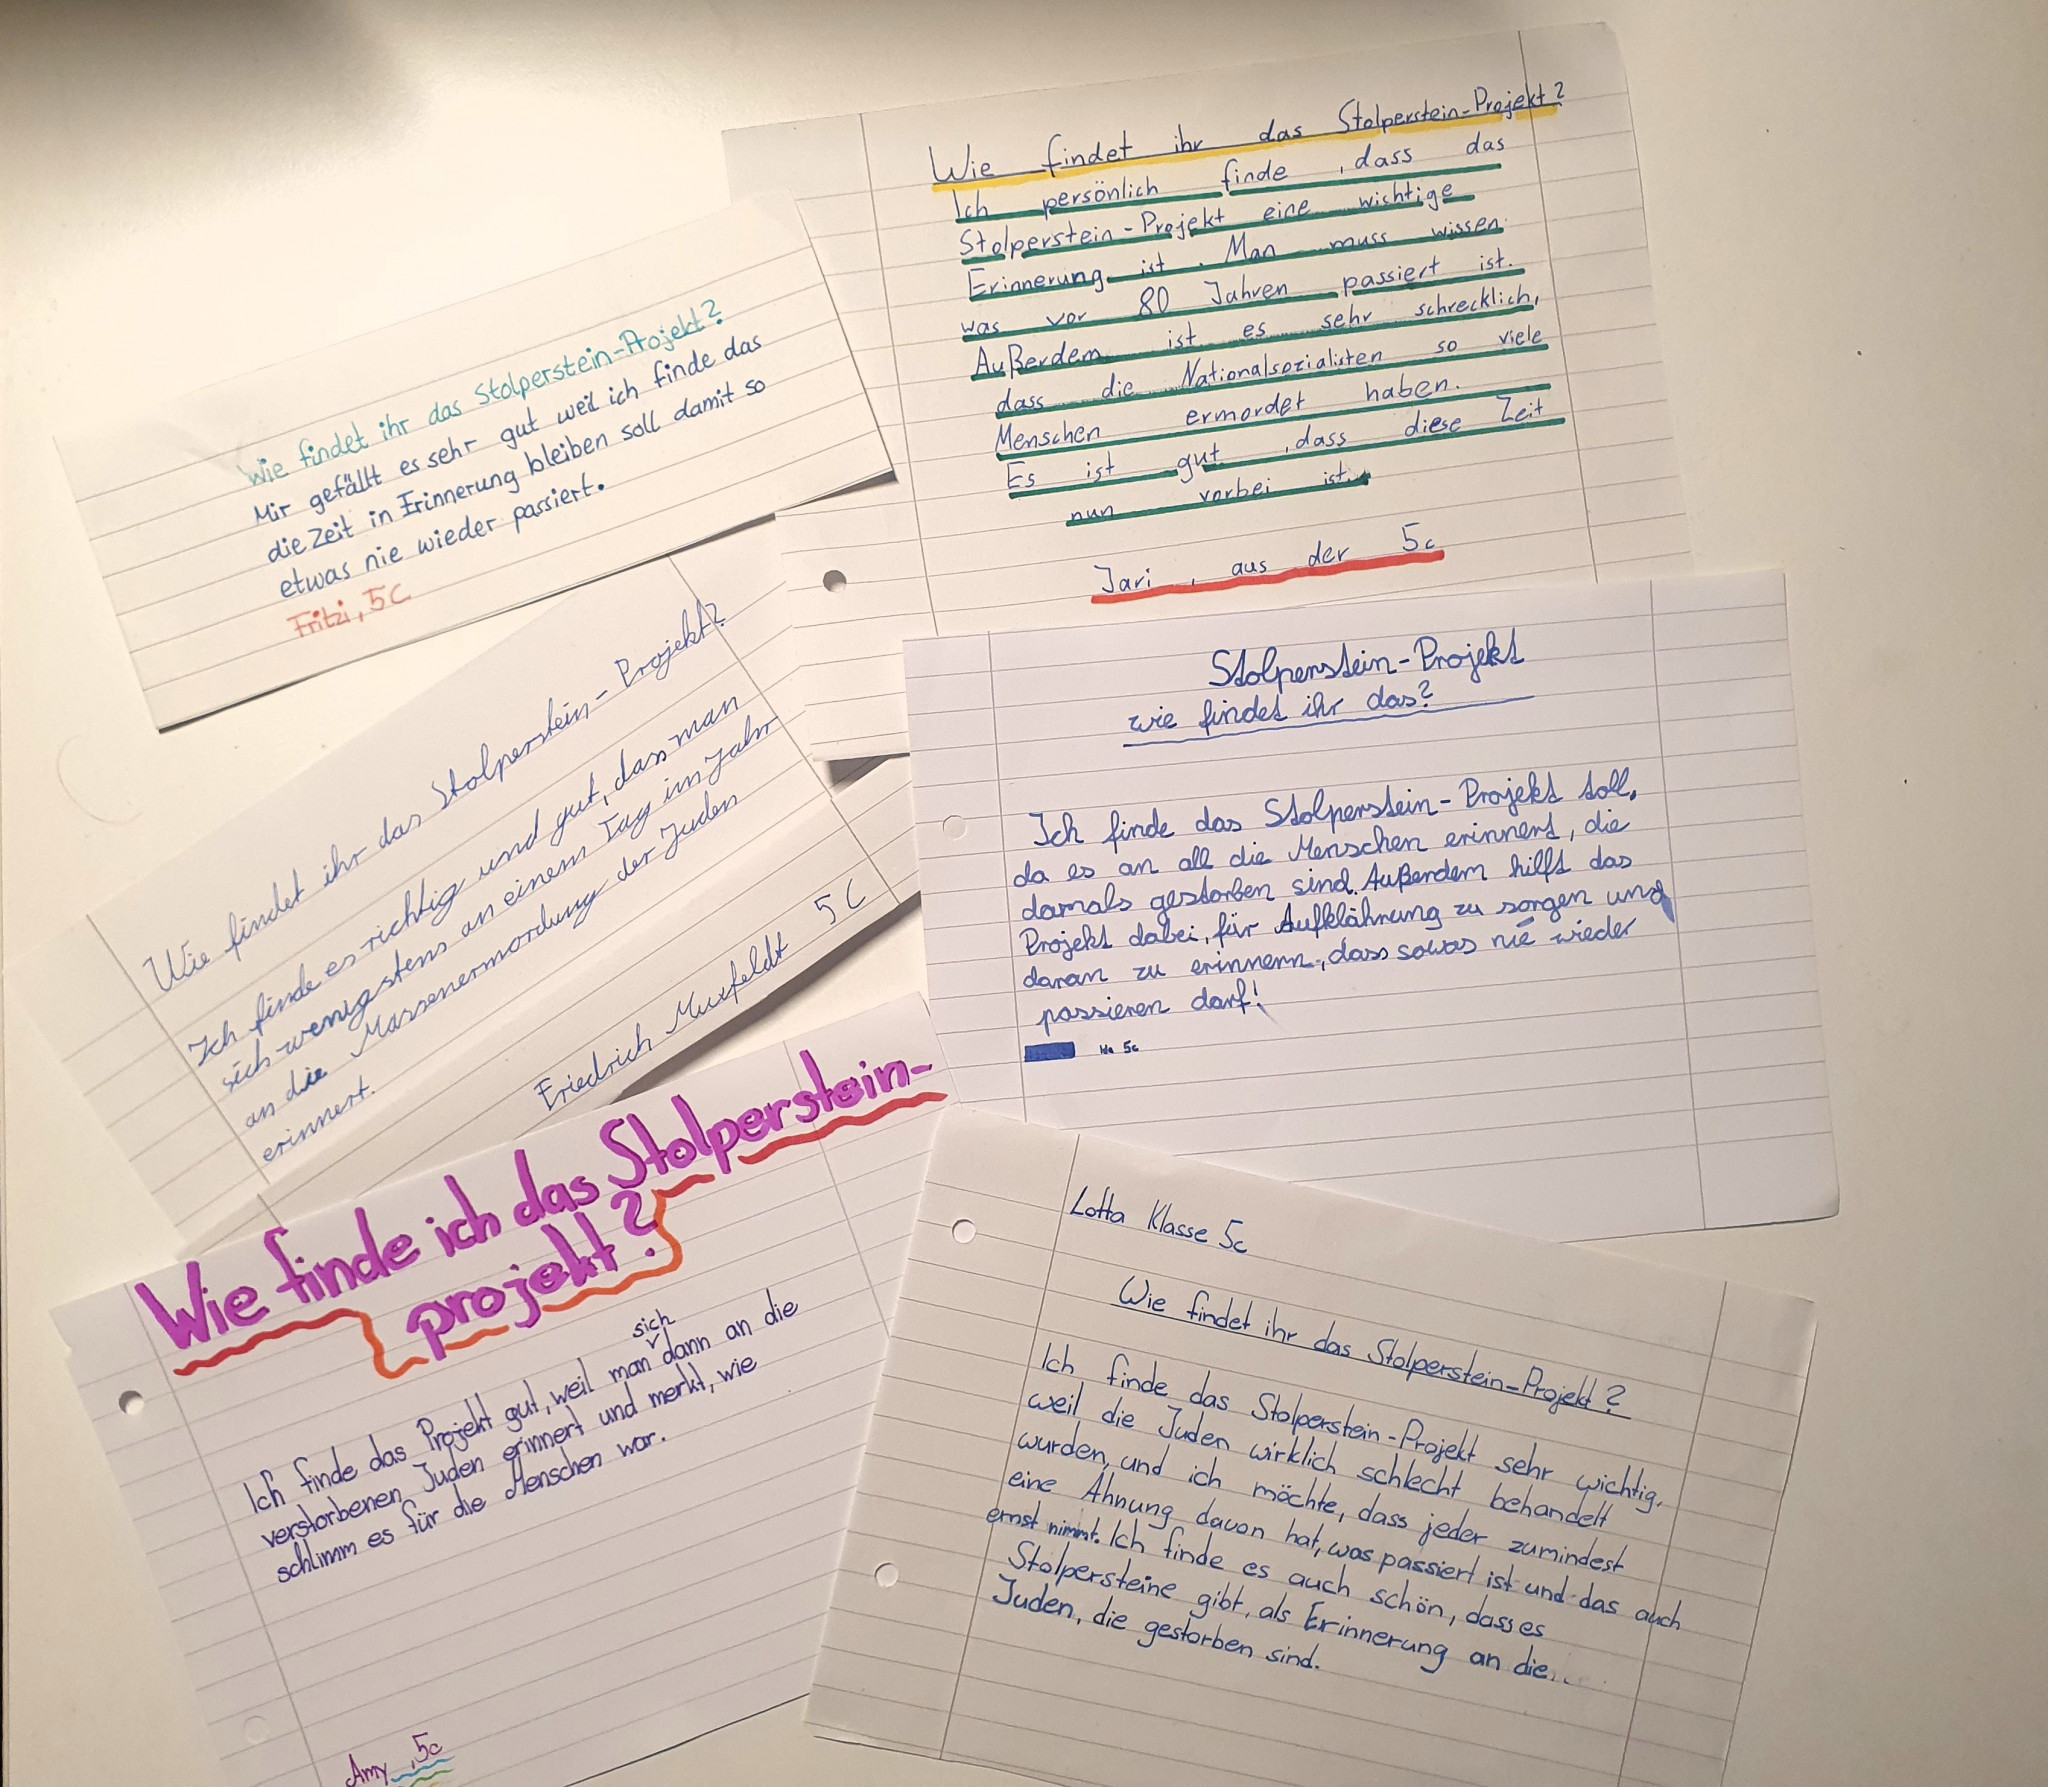 Wie findet ihr das Stolperstein-Projekt?
Ich persönlich finde, dass das
Stolperstein-Projekt eine wichtige
Erinnerung ist. Man muss wissen
was vor 80 Jahren passiert ist.
Außerdem ist es sehr schrecklich,
dass die Nationalsozialisten so viele
Menschen ermordet haben.
Es ist gut, dass diese Zeit
nun vorbei ist.
Jari, aus der 5c
Wie findet ihr das Stolperstein-Projekt?
Mir gefällt es sehr gut weil ich finde das
die Zeit in Erinnerung bleiben soll damit so
etwas nie wieder passiert.
Fritzi, 5C
Wie findet ihr das Stolperstein-Projekt?
Ich finde es richtig und gut, dass man
sich wenigstens an einem Tag im Jahr
an die Massenermordung der Juden
erinnert.
Friedrich Muxfeldt 5C
Stolperstein-Projekt
wie findet ihr das?
Ich finde das Stolperstein-Projekt toll,
da es an all die Menschen erinnert, die
damals gestorben sind. Außerdem hilft das
Projekt dabei, für Aufklährung zu sorgen und
daran zu erinnern, dass sowas nie wieder
passieren darf!
5c
Wie finde ich das Stolperstein-
projekt?
Ich finde das Projekt gut, weil man sich dann an die
verstorbenen Juden erinnert und merkt, wie
schlimm es für die Menschen war.
Amy, 5c
Lotta Klasse 5c
Wie findet ihr das Stolperstein-Projekt?
Ich finde das Stolperstein-Projekt sehr wichtig,
weil die Juden wirklich schlecht behandelt
wurden, und ich möchte, dass jeder zumindest
eine Ahnung davon hat, was passiert ist und das auch
ernst nimmt. Ich finde es auch schön, dass es
Stolpersteine gibt, als Erinnerung an die
Juden, die gestorben sind.